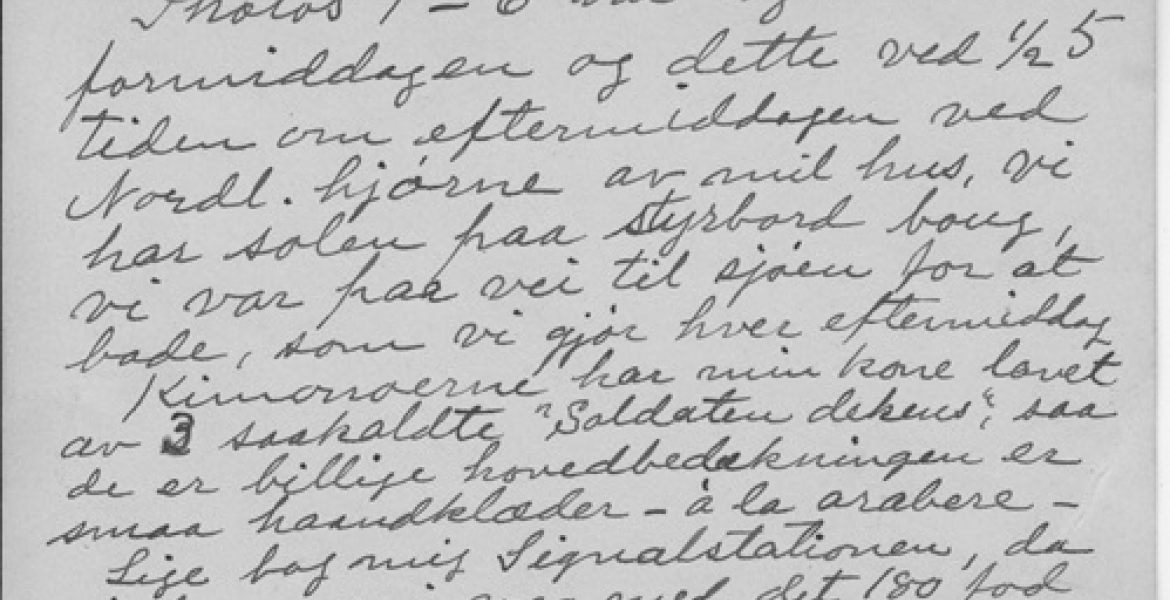 Photos 1 – 6
formiddagen og dette ved ½ 5
tiden om eftermiddagen ved
Nordl. hjørne av mit hus, vi
har solen paa styrbord boug,
vi var paa vei til sjøen for at
bade, som vi gjør hver eftermiddag
Kimonoerne har min kone lavet
av 3 saakaldte "Soldaten dekens", saa
de er billige hovedbedækningen er
smaa haandklæder – à la arabere –
Lige bag mig Signalstationen, da
med det 180 fod